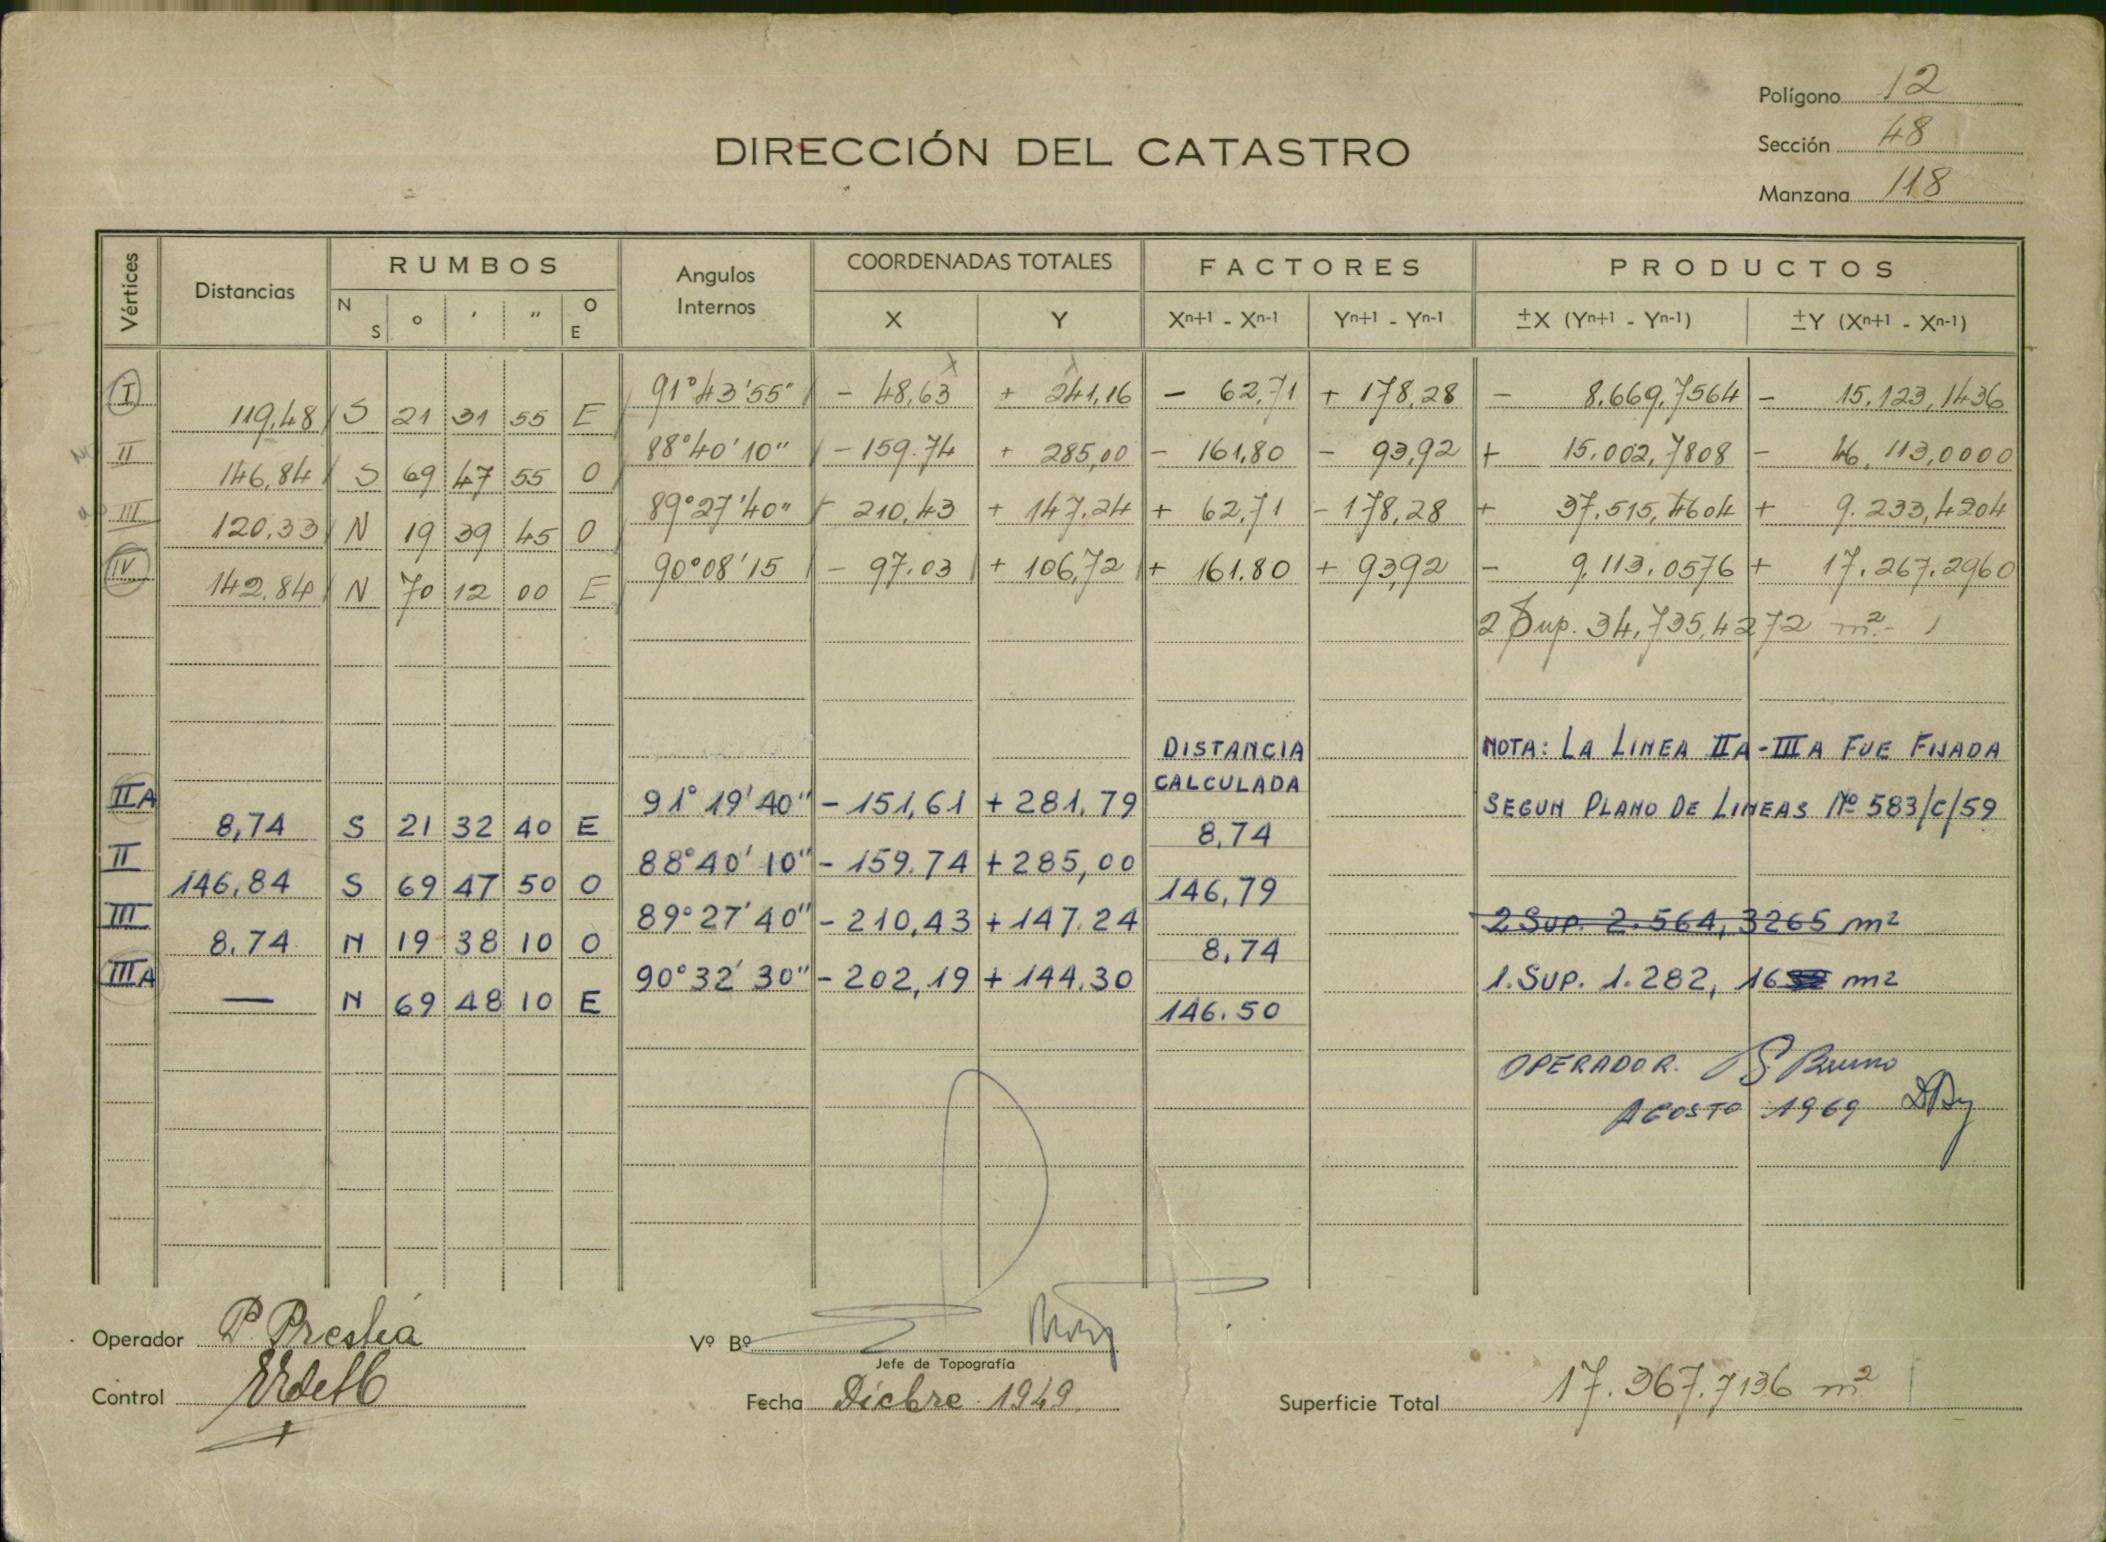 Polígono 12
DIRECCIÓN DEL CATASTRO
Sección 48
Manzana 118
Vértices Distancias RUMBOS Angulos Internos COORDENADAS TOTALES FACTORES PRODUCTOS
N S ° ' " O E X Y Xn+1 - Xn-1 Yn+1 - Yn-1 ±X (Yn+1 - Yn-1) ±Y (Xn+1 - Xn-1)
I 91°43'55" - 48,63 + 241,16 - 62,71 + 178,28 - 8.669,7564 - 15.123,1436
119,48 S 21 31 55 E
II 88°40'10" - 159.74 + 285,00 - 161,80 - 93,92 + 15.002,7808 - 46,113,0000
146,84 S 69 47 55 O
III 89°27'40" - 210,43 + 147.24 + 62,71 - 178,28 + 37.515,4604 + 9.233,4204
120,33 N 19 39 45 O
IV 90°08'15 - 97.03 + 106,72 + 161.80 + 93,92 - 9,113.0576 + 17.267.2960
142,84 N 70 12 00 E
2 Sup. 34,735,4272 m2
DISTANCIA NOTA: LA LINEA IIA-IIIA FUE FIJADA
CALCULADA
IIA 91° 19' 40" - 151,61 + 281,79 SEGUN PLANO DE LINEAS Nº 583/C/59
8,74 S 21 32 40 E 8,74
II 88°40' 10" - 159.74 + 285,00
146,84 S 69 47 50 O 146,79
III 89°27'40" - 210,43 + 147.24 2 Sup. 2.564,3265 m2
8.74 N 19 38 10 O 8,74
IIIA 90°32' 30" - 202,19 + 144.30 1.SUP. 1.282, 16 m2
— N 69 48 10 E 146.50
OPERADOR. S. Bruno
AGOSTO 1969
Operador P. Prestia Vº Bº
Jefe de Topografía
Control
Fecha Dicbre. 1949. Superficie Total 17.367.7136 m2